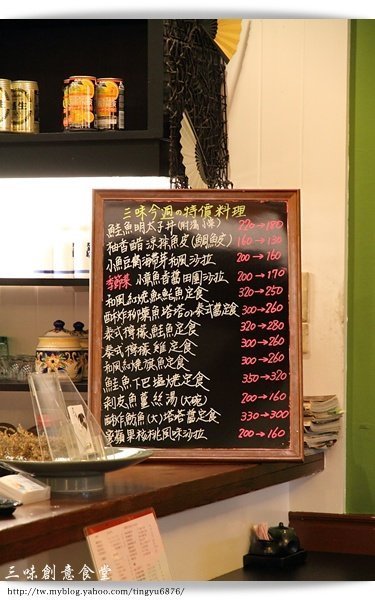 三味今週の特價料理
鮭魚明太子丼(附湯) 220→180
柚香醋涼拌魚皮(鯛魚皮) 160→130
小魚豆腐海芽和風沙拉 200→160
小章魚香菇田園沙拉 200→170
和風紅燒魠魠魚定食 320→250
酥炸柳葉魚塔塔or泰式醬定食 300→260
泰式檸檬鮭魚定食 320→280
泰式檸檬雞定食 300→260
和風紅燒旗魚定食 300→260
鮭魚下巴塩燒定食 350→320
剝皮魚薑絲湯(大碗) 200→160
酥炸魴魚(大)塔塔醬定食 330→300
蘋果核桃風味沙拉 200→160
三味創意食堂
http://tw.myblog.yahoo.com/tingyu6876/